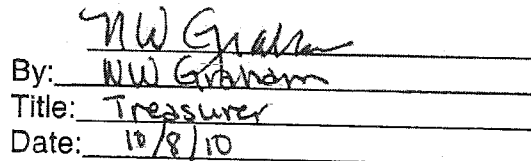 NW Graham
By: NW Graham
Title: Treasurer
Date: 10/8/10